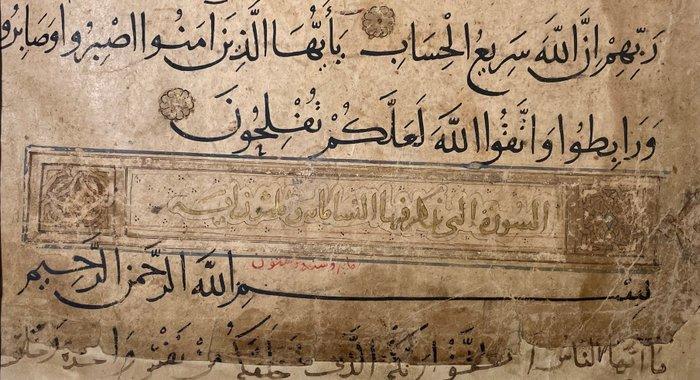 رَبِّهِمْ إِنَّ اللَّهَ سَرِيعُ الْحِسَابِ يَأَيُّهَا الَّذِينَ آمَنُوا اصْبِرُوا وَصَابِرُوا
وَرَابِطُوا وَاتَّقُوا اللَّهَ لَعَلَّكُمْ تُفْلِحُونَ
السورة التي يذكر فيها النسا
بِسْمِ اللَّهِ الرَّحْمَنِ الرَّحِيمِ
يا أيها الناس اتقوا ربكم الذي خلقكم من نفس واحدة وخلق